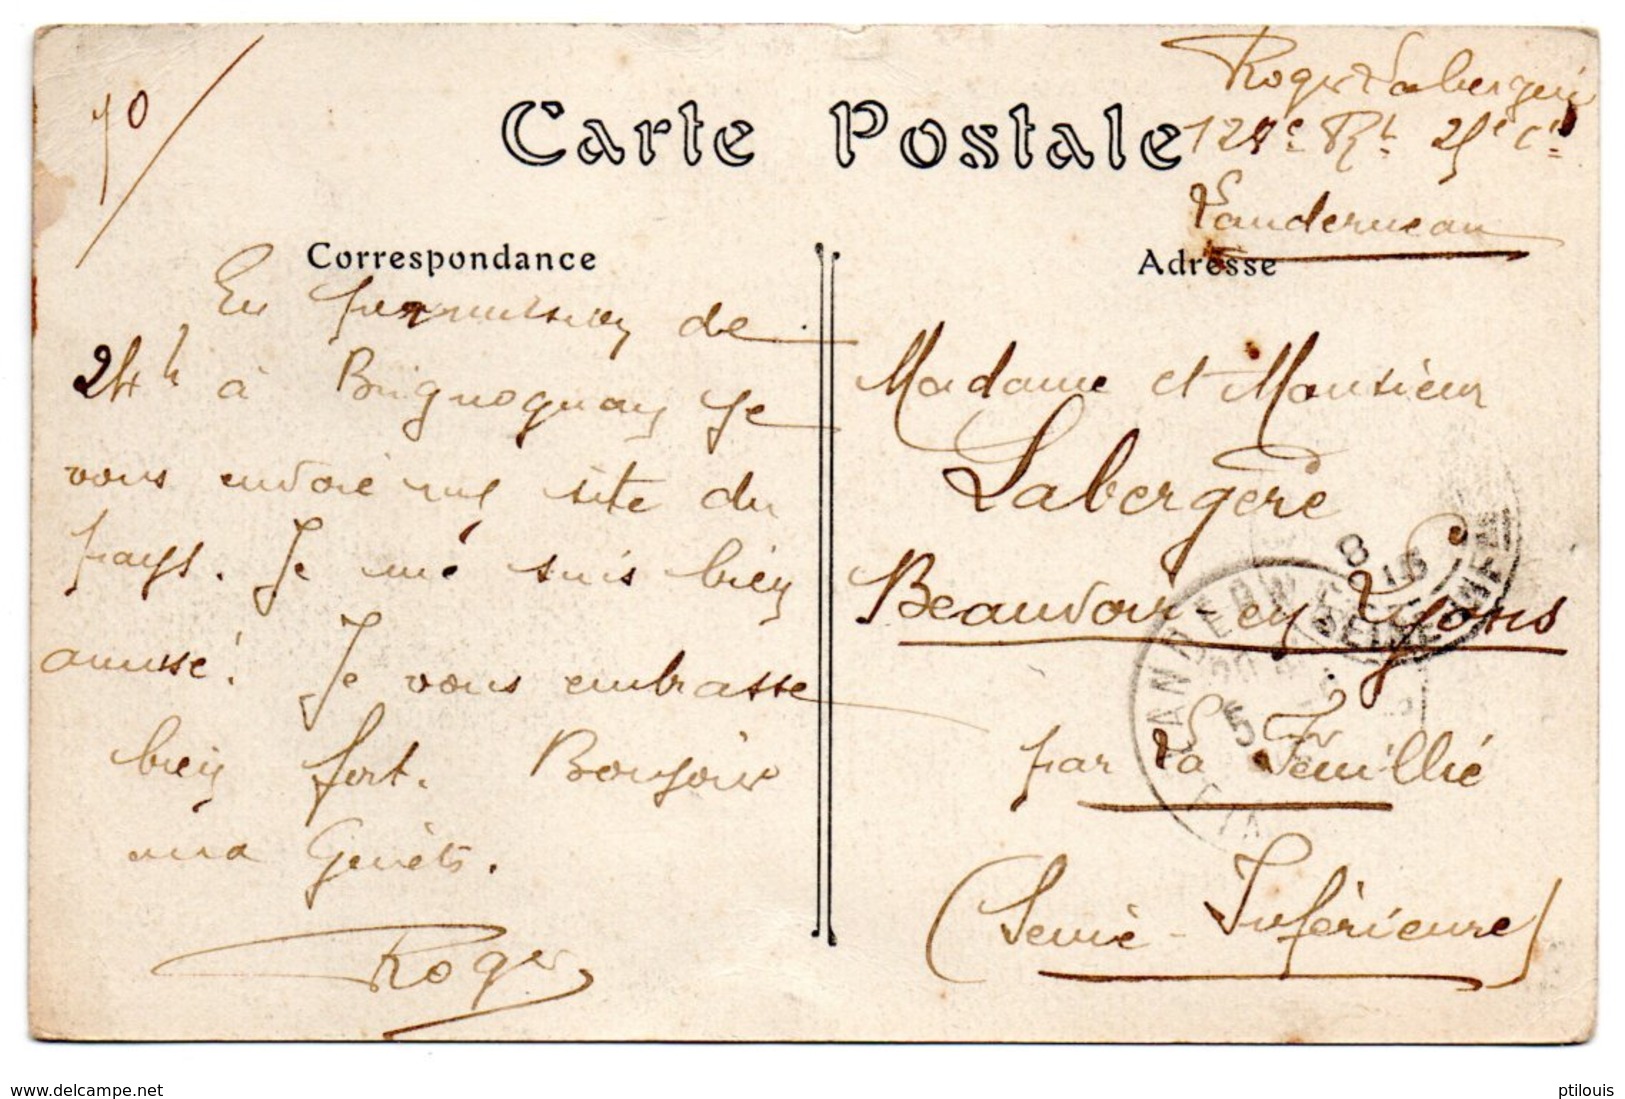 10
Carte Postale
Roger Labergère
Rt 25e Cie
Landerneau
Correspondance
En permission de
24h à Brignognan je
vous envoie une site du
pays. Je me suis bien
amusé! Je vous embrasse
bien fort. Bonjour
aux Genêts.
Roger
Adresse
Madame et Monsieur
Labergère
Beauvoir en Lyons
par La Feuillie
(Seine-Inférieure)
LANDERNEAU
www.delcampe.net
ptilouis